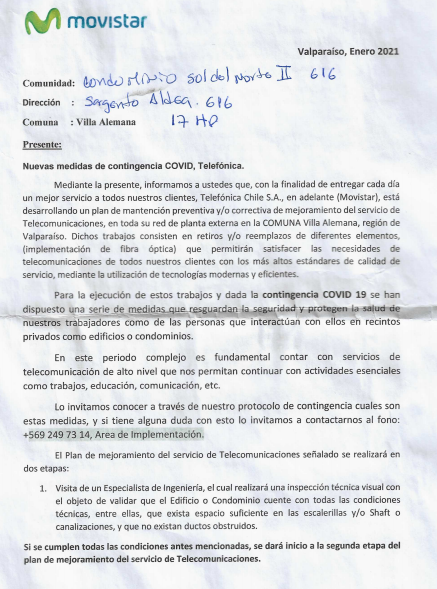 movistar
Valparaíso, Enero 2021
Comunidad: Condominio Sol del Norte II 616
Dirección : Sargento Aldea. 616
Comuna : Villa Alemana 17 HP
Presente:
Nuevas medidas de contingencia COVID, Telefónica.
Mediante la presente, informamos a ustedes que, con la finalidad de entregar cada día
un mejor servicio a todos nuestros clientes, Telefónica Chile S.A., en adelante (Movistar), está
desarrollando un plan de mantención preventiva y/o correctiva de mejoramiento del servicio de
Telecomunicaciones, en toda su red de planta externa en la COMUNA Villa Alemana, región de
Valparaíso. Dichos trabajos consisten en retiros y/o reemplazos de diferentes elementos,
(implementación de fibra óptica) que permitirán satisfacer las necesidades de
telecomunicaciones de todos nuestros clientes con los más altos estándares de calidad de
servicio, mediante la utilización de tecnologías modernas y eficientes.
Para la ejecución de estos trabajos y dada la contingencia COVID 19 se han
dispuesto una serie de medidas que resguardan la seguridad y protegen la salud de
nuestros trabajadores como de las personas que interactúan con ellos en recintos
privados como edificios o condominios.
En este periodo complejo es fundamental contar con servicios de
telecomunicación de alto nivel que nos permitan continuar con actividades esenciales
como trabajos, educación, comunicación, etc.
Lo invitamos conocer a través de nuestro protocolo de contingencia cuales son
estas medidas, y si tiene alguna duda con esto lo invitamos a contactarnos al fono:
+569 249 73 14, Area de Implementación.
El Plan de mejoramiento del servicio de Telecomunicaciones señalado se realizará en
dos etapas:
1. Visita de un Especialista de Ingeniería, el cual realizará una inspección técnica visual con
el objeto de validar que el Edificio o Condominio cuente con todas las condiciones
técnicas, entre ellas, que exista espacio suficiente en las escalerillas y/o Shaft o
canalizaciones, y que no existan ductos obstruidos.
Si se cumplen todas las condiciones antes mencionadas, se dará inicio a la segunda etapa del
plan de mejoramiento del servicio de Telecomunicaciones.